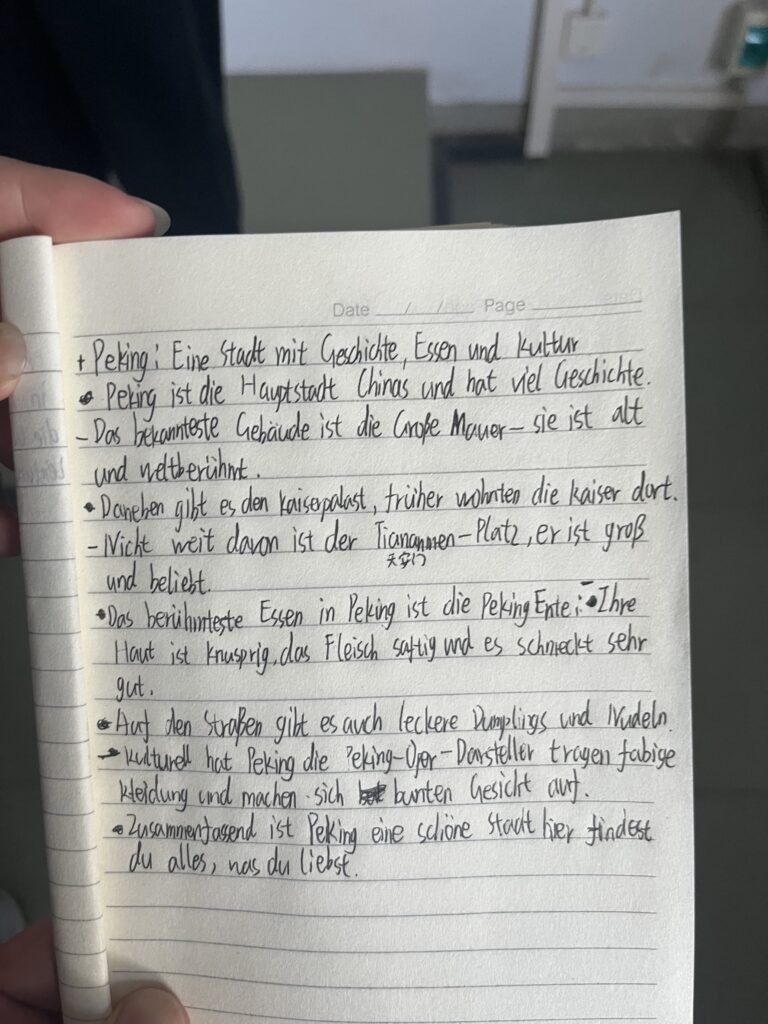 Date / / Page
+ Peking: Eine Stadt mit Geschichte, Essen und Kultur
• Peking ist die Hauptstadt Chinas und hat viel Geschichte.
- Das bekannteste Gebäude ist die Große Mauer - sie ist alt
und weltberühmt.
• Daneben gibt es den Kaiserpalast, früher wohnten die Kaiser dort.
- Nicht weit davon ist der Tiananmen-Platz, er ist groß
天安门
und beliebt.
• Das berühmteste Essen in Peking ist die Peking Ente: • Ihre
Haut ist knusprig, das Fleisch saftig und es schmeckt sehr
gut.
• Auf den Straßen gibt es auch leckere Dumplings und Nudeln.
- Kulturell hat Peking die Peking-Oper-Darsteller tragen fabige
Kleidung und machen sich bunten Gesicht auf.
• Zusammenfasend ist Peking eine schöne Stadt hier findest
du alles, was du liebst.